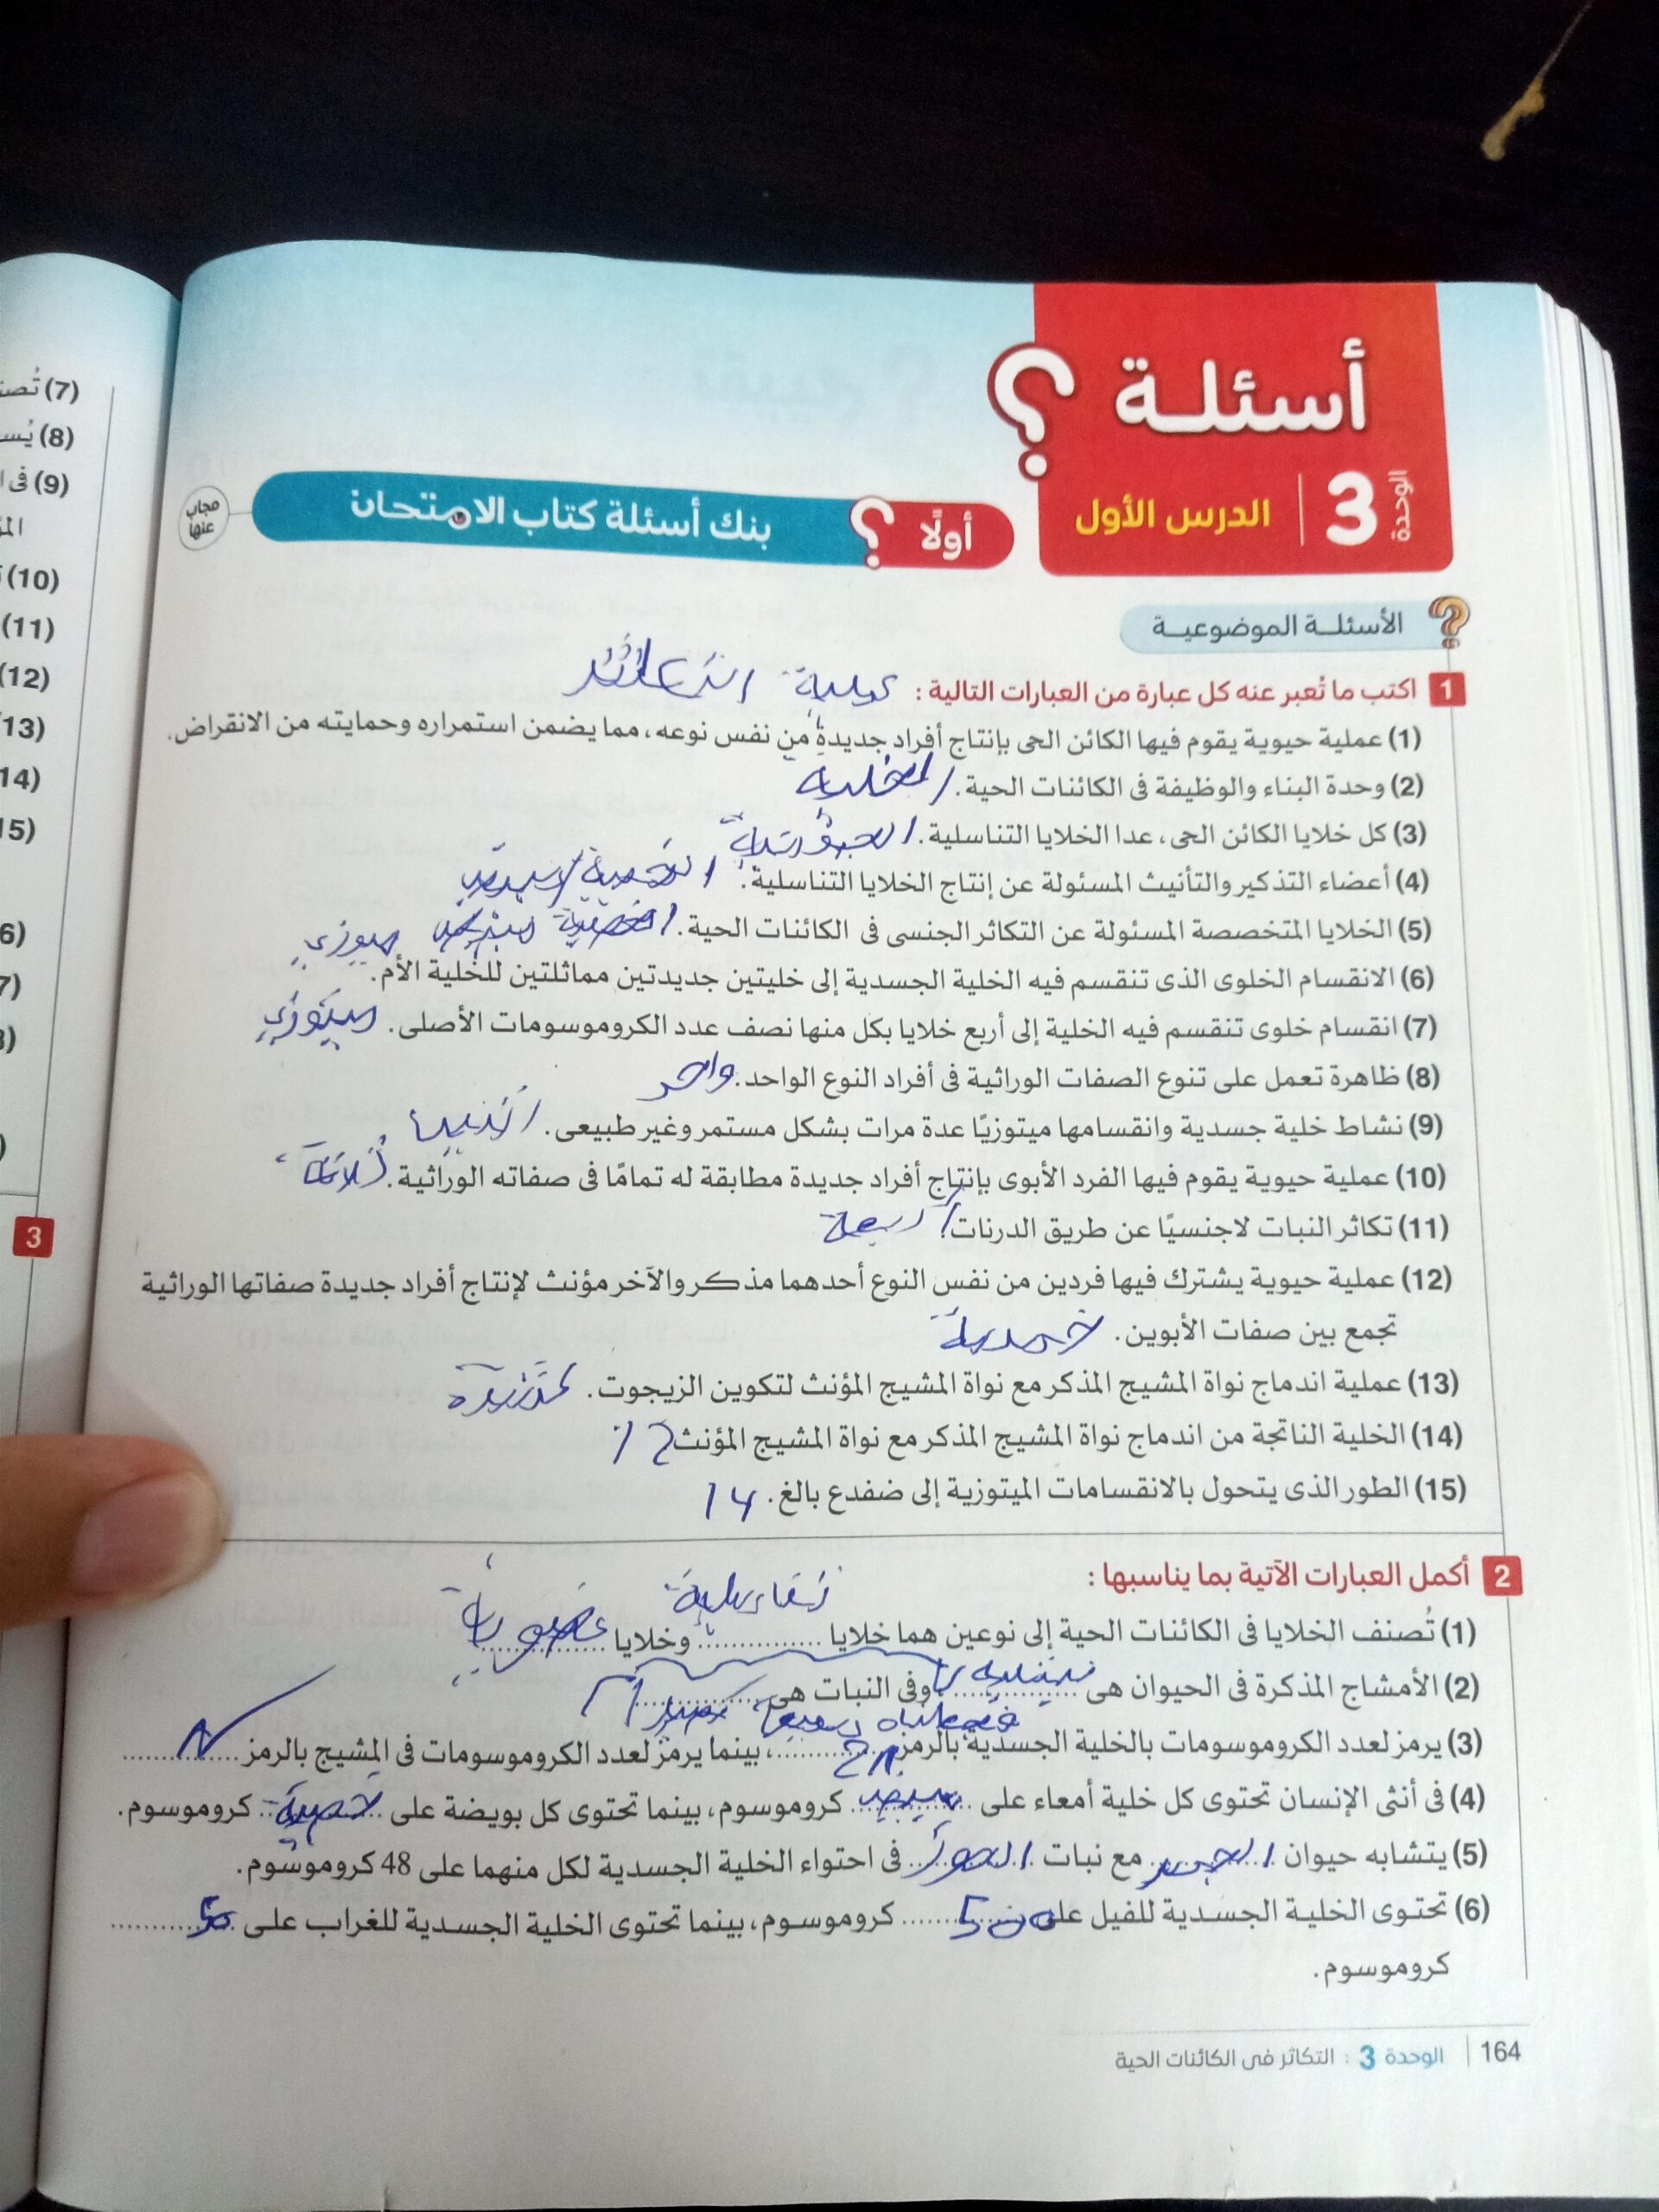 أسئلة ؟
الوحدة 3 | الدرس الأول
أولًا ؟ بنك أسئلة كتاب الامتحان
مجاب عنها
؟ الأسئلــة الموضوعيــة
1 اكتب ما تُعبر عنه كل عبارة من العبارات التالية : عملية التكاثر
(1) عملية حيوية يقوم فيها الكائن الحى بإنتاج أفراد جديدة من نفس نوعه، مما يضمن استمراره وحمايته من الانقراض.
(2) وحدة البناء والوظيفة فى الكائنات الحية. الخلية
(3) كل خلايا الكائن الحى، عدا الخلايا التناسلية.
(4) أعضاء التذكير والتأنيث المسئولة عن إنتاج الخلايا التناسلية.
(5) الخلايا المتخصصة المسئولة عن التكاثر الجنسى فى الكائنات الحية.
(6) الانقسام الخلوى الذى تنقسم فيه الخلية الجسدية إلى خليتين جديدتين مماثلتين للخلية الأم.
(7) انقسام خلوى تنقسم فيه الخلية إلى أربع خلايا بكل منها نصف عدد الكروموسومات الأصلى.
(8) ظاهرة تعمل على تنوع الصفات الوراثية فى أفراد النوع الواحد. واحد
(9) نشاط خلية جسدية وانقسامها ميتوزيًا عدة مرات بشكل مستمر وغير طبيعى.
(10) عملية حيوية يقوم فيها الفرد الأبوى بإنتاج أفراد جديدة مطابقة له تمامًا فى صفاته الوراثية. ثلاثة
(11) تكاثر النبات لاجنسيًا عن طريق الدرنات. أربعة
(12) عملية حيوية يشترك فيها فردين من نفس النوع أحدهما مذكر والآخر مؤنث لإنتاج أفراد جديدة صفاتها الوراثية
تجمع بين صفات الأبوين. خمسة
(13) عملية اندماج نواة المشيج المذكر مع نواة المشيج المؤنث لتكوين الزيجوت.
(14) الخلية الناتجة من اندماج نواة المشيج المذكر مع نواة المشيج المؤنث.
(15) الطور الذى يتحول بالانقسامات الميتوزية إلى ضفدع بالغ. 14
2 أكمل العبارات الآتية بما يناسبها :
(1) تُصنف الخلايا فى الكائنات الحية إلى نوعين هما خلايا .............. وخلايا ..............
(2) الأمشاج المذكرة فى الحيوان هى .............. وفى النبات هى ..............
(3) يرمز لعدد الكروموسومات بالخلية الجسدية بالرمز .............. ، بينما يرمز لعدد الكروموسومات فى المشيج بالرمز N ..............
(4) فى أنثى الإنسان تحتوى كل خلية أمعاء على .............. كروموسوم، بينما تحتوى كل بويضة على .............. كروموسوم.
(5) يتشابه حيوان .............. مع نبات .............. فى احتواء الخلية الجسدية لكل منهما على 48 كروموسوم.
(6) تحتوى الخلية الجسدية للفيل على .............. كروموسوم، بينما تحتوى الخلية الجسدية للغراب على ..............
كروموسوم.
164 | الوحدة 3 : التكاثر فى الكائنات الحية
(7) تُصن
(8) يُس
(9) فى ا
الم
(10)
(11)
(12)
(13)
14)
15)
6)
7)
3